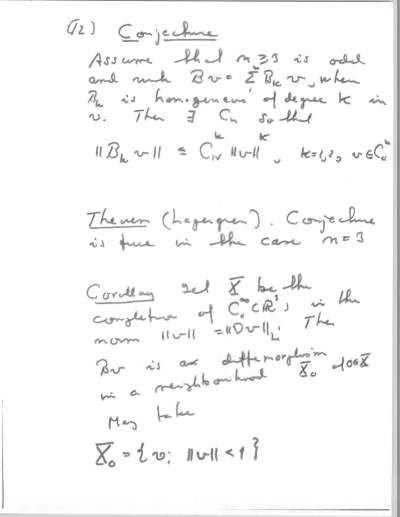 (12) Conjecture
Assume that n ≥ 3 is odd
and write Bv = Σ B_k v, where
B_k is homogeneous of degree k in
v. Then ∃ C_n so that
||B_k v|| ≤ C_n^k ||v||^k, k=1,2,, v ∈ C_0^∞
Theorem (Lagergren). Conjecture
is true in the case n=3
Corollary Let X be the
completion of C_0^∞(R^3) in the
norm ||v|| = ||Dv||_L. Then
Bv is a diffeomorphism
in a neighbourhood X_0 of 0∈X
May take
X_0 = {v; ||v|| < 1}